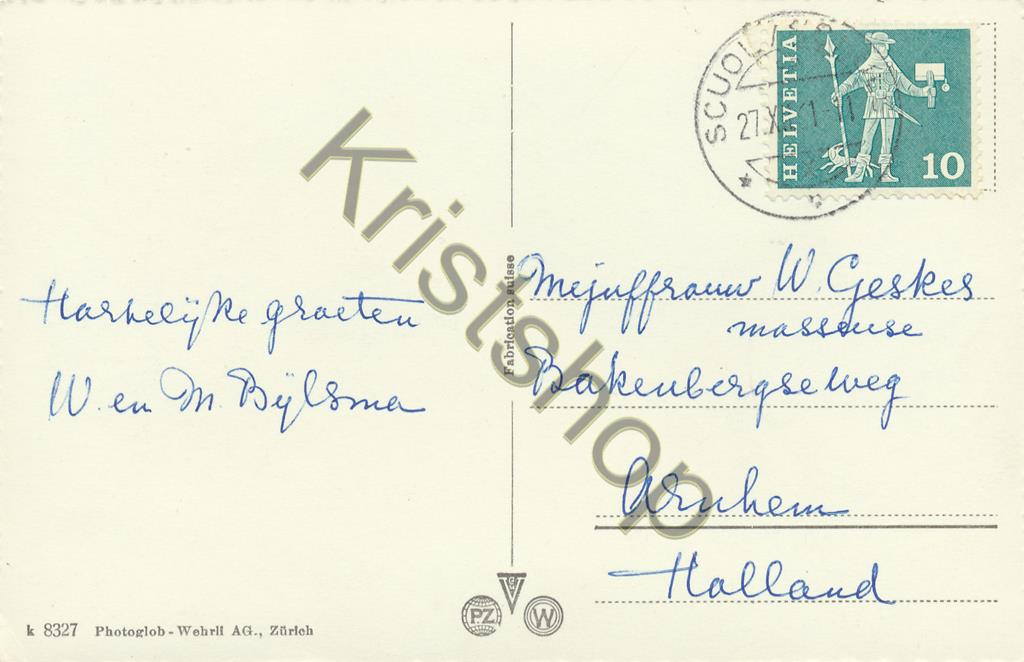 Hartelijke groeten
W. en M. Bijlsma
k 8327 Photoglob-Wehrli AG., Zürich
Fabrication suisse
PZ
W
Kristshop
SCUOL
27.X
HELVETIA
10
Mejuffrouw W. Geskes
masseuse
Bakenbergseweg
Arnhem
Holland